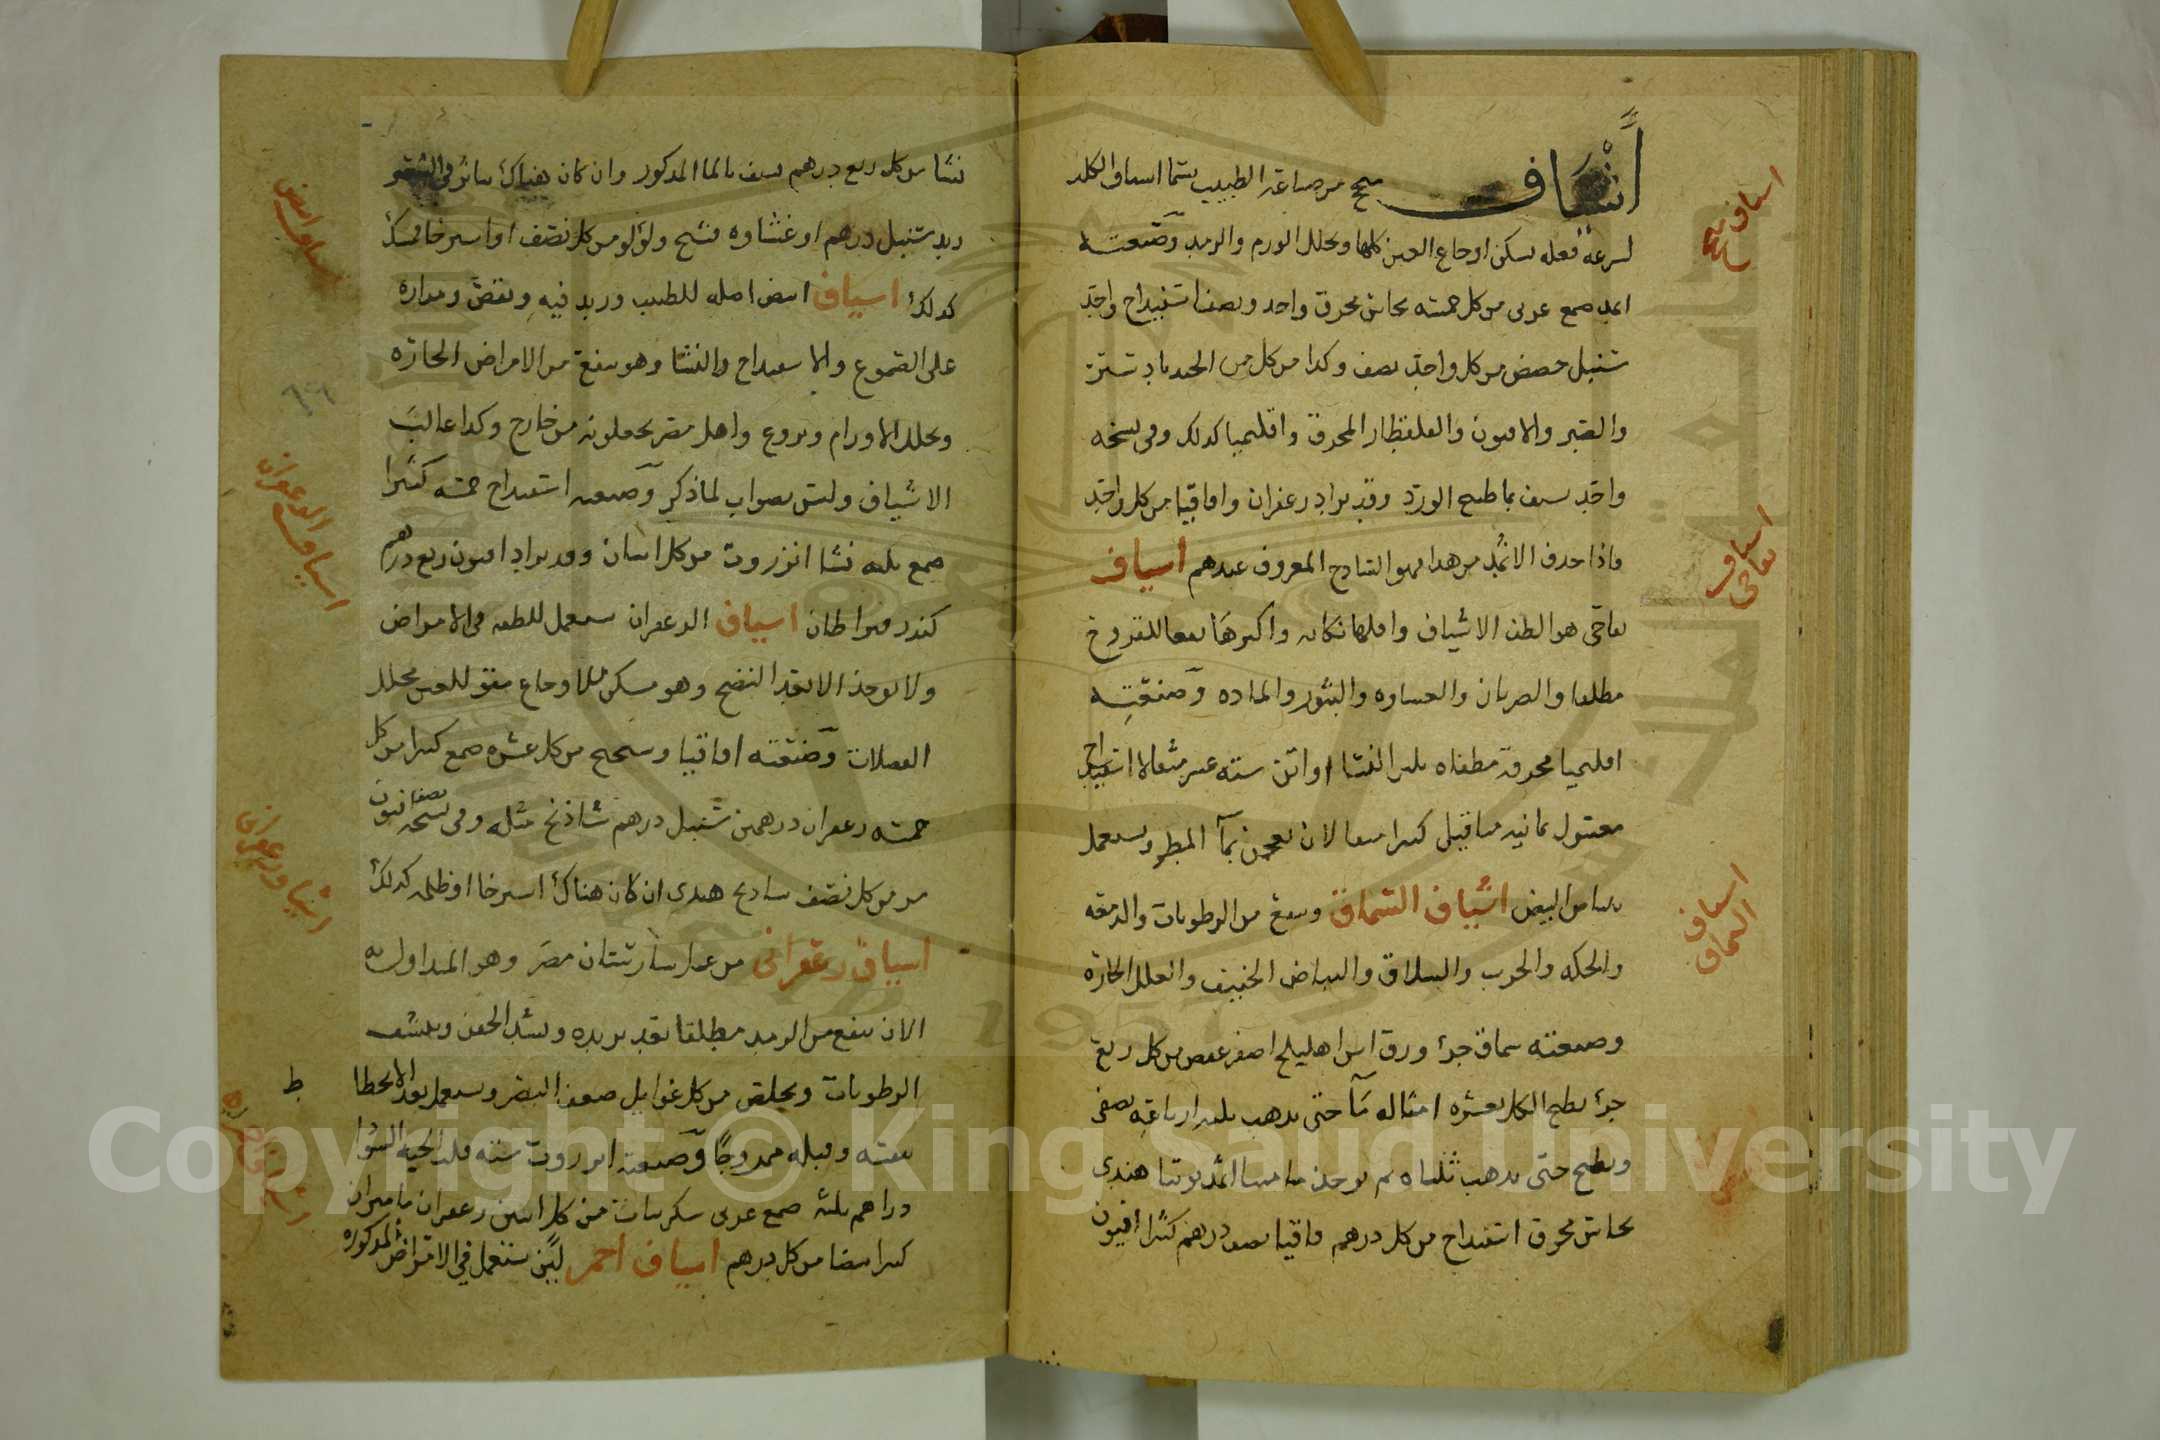 أشياف صح من صناعة الطبيب يسما اسياف الكلد
لسرعة فعله يسكن اوجاع العين كلها ويحلل الورم والرمد وصنعته
اثمد صمغ عربى من كل خمسه نحاس محرق واحد ونصف اسفيداج واحد
سنبل حضض من كل واحد نصف وكدا من كل من الجندبادستر
والصبر والافيون والقلقطار المحرق واقليميا كدلك وفى نسخه
واحد يشيف بماطبيخ الورد وقد يراد زعفران واقاقيا من كل واحد
فاذا حدف الاثمد من هدا فهو السادج المعروف عندهم اسياف
تفاحى هو الطف الاشياف واقلها نكايه واكبرها نفعا للقروح
مطلقا والضربان والغشاوه والبثور والماده وصنعته
اقليميا محرقة مطفاه بلبن النسا اواتن سته عشر مثقالا اسفيداج
مغسول ثمانيه مثاقيل كثيرا مثقالان يعجن بماء المطر ويستعمل
ببياض البيض اشياف السماق وينفع من الرطوبات والدمعه
والحكه والجرب والسلاق والبياض الخفيف والعلل الحارة
وصنعته سماق جزء ورق اس اهليلج اصفر عفص من كل ربع
جزء يطبخ الكل بعشرة امثاله ماء حتى يدهب ثلثه ارباعه يصفى
ويطبخ حتى يدهب ثلثاه ثم يوخذ ماميثا اثمد توتيا هندى
نحاس محرق اسفيداج من كل درهم قاقيا نصف درهم كثيرا افيون
اسياف
اسياف
تفاحى
اسياف
السماق
نشا من كل ربع درهم يشيف بالما المدكور وان كان هناك بياض
زيد سنبل درهم او غشاوه فسبح ولؤلؤ من كل نصف او استرخا فمسك
كدلك اسياف ابيض اصله للطبيب وزيد فيه ونقص ومداره
على الصموغ والاسفيداج والنشا وهو ينفع من الامراض الحاره
ويحلل الاورام ويردع واهل مصر يجعلونه من خارج وكدا غالب
الاشياف وليس بصواب لماذكر وصنعته اسفيداج خمسه كثيرا
صمغ ثلثه نشا انزروت من كل اثنان وقد يراد افيون ربع درهم
كندر قيراطان اسياف الزعفران يستعمل للطفه فى الامراض
ولا يوخذ الا بعد النضج وهو مسكن للاوجاع مقو للعين محلل
الفضلات وصنعته اقاقيا وسحيج من كل عشره صمغ كثيرا من كل
خمسه زعفران درهمين سنبل درهم شاذنج مثله وفى نسخه افيون نصف
مر من كل نصف سادج هندى ان كان هناك استرخا او ظلمه كدلك
اسياف زعفرانى من عمل مارستان مصر وهو المتداول به
الان ينفع من الرمد مطلقا بعد تزيده ويشد الجفن وينشف
الرطوبات ويخلص من كل غوايل ضعف البصر ويستعمل بعد الانحطاط
بنفسه وقبله ممزوجا وصنعته انزروت سته
دراهم ثلثه صمغ عربى سكر نبات من كل اثنين زعفران ماميران
كثيرا بيضا من كل درهم اسياف احمر لين يستعمل فى الامراض المدكوره
اسياف ابيض
اسياف الزعفران
اشياف زعفرانى
Copyright © King Saud University